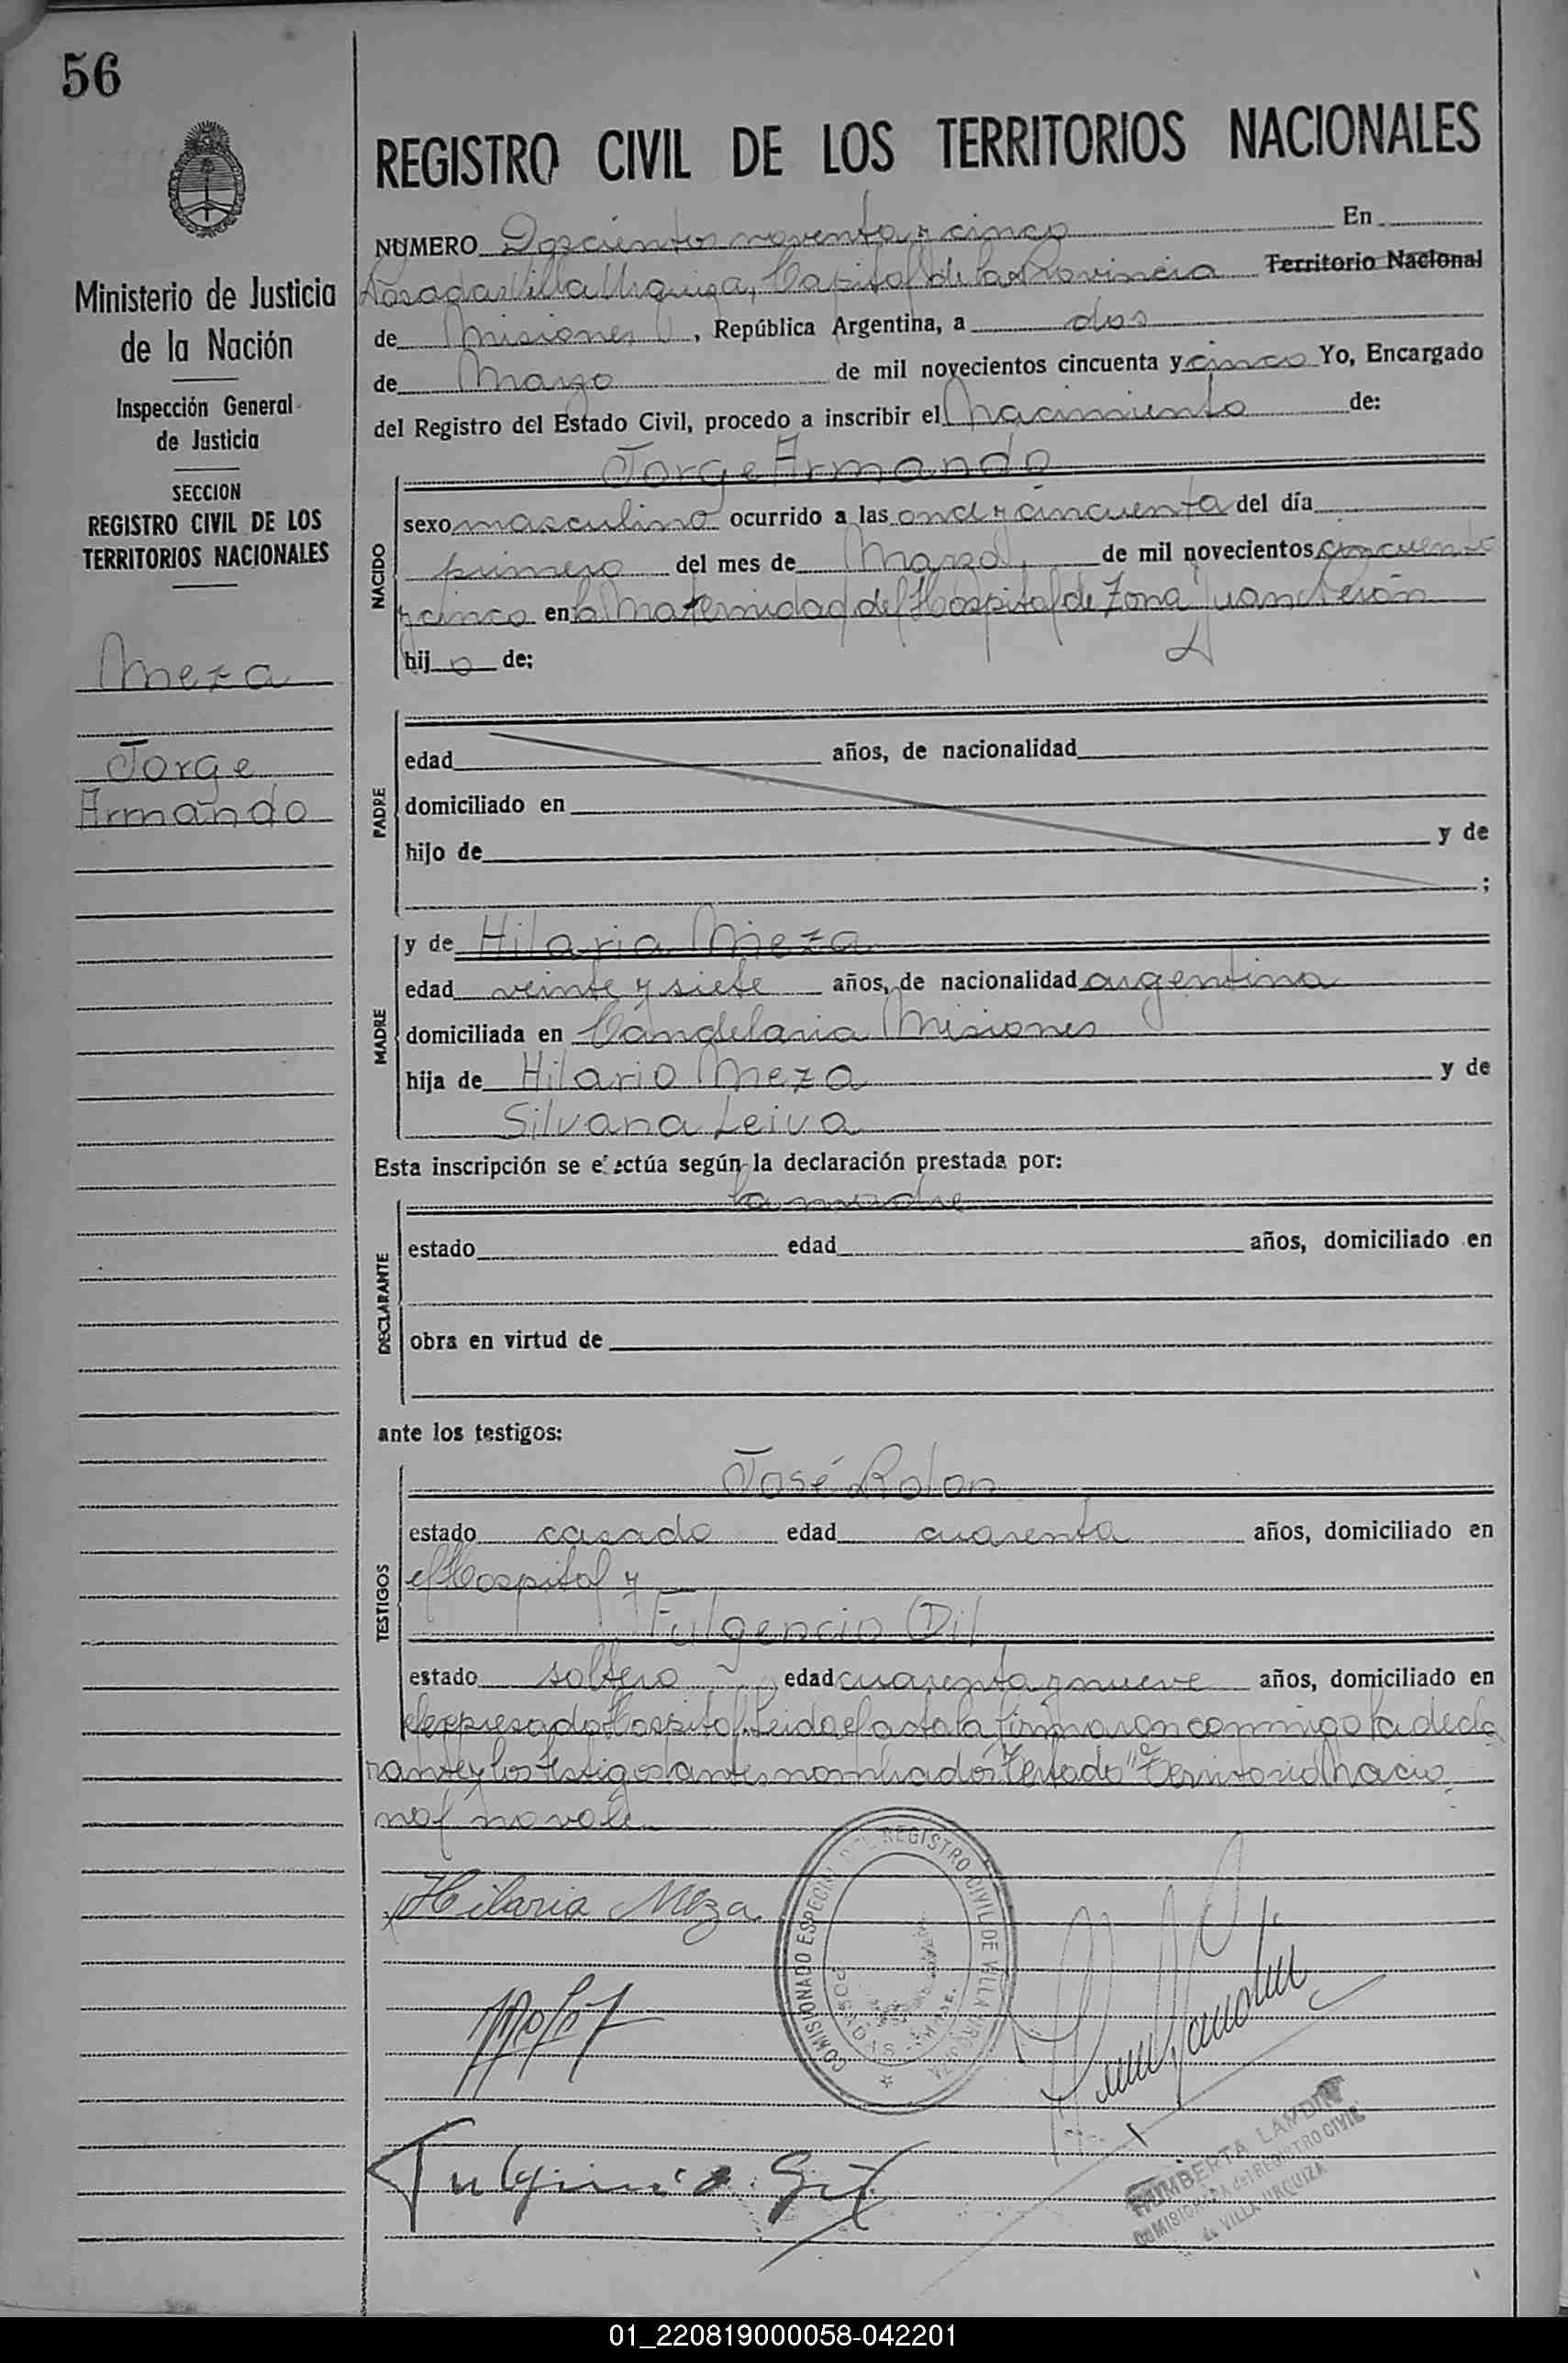 56
REGISTRO CIVIL DE LOS TERRITORIOS NACIONALES
NUMERO Doscientos noventa y cinco En
Posadas Villa Urquiza, Capital de la Provincia Territorio Nacional
de Misiones, República Argentina, a dos
de Marzo de mil novecientos cincuenta y cinco Yo, Encargado
del Registro del Estado Civil, procedo a inscribir el nacimiento de:
Ministerio de Justicia
de la Nación
Inspección General
de Justicia
SECCION
REGISTRO CIVIL DE LOS
TERRITORIOS NACIONALES
Meza
Jorge
Armando
NACIDO
Jorge Armando
sexo masculino ocurrido a las once y cincuenta del día
primero del mes de Marzo de mil novecientos cincuenta
y cinco en la Maternidad del Hospital de Zona Juan Perón
hijo de:
PADRE
edad años, de nacionalidad
domiciliado en
hijo de y de
;
MADRE
y de Hilaria Meza
edad veinte y siete años, de nacionalidad argentina
domiciliada en Candelaria Misiones
hija de Hilario Meza y de
Silvana Leiva
Esta inscripción se efectúa según la declaración prestada por:
DECLARANTE
la madre
estado edad años, domiciliado en
obra en virtud de
ante los testigos:
TESTIGOS
José Rolon
estado casado edad cuarenta años, domiciliado en
el Hospital y
Fulgencio Gil
estado soltero edad cuarenta y nueve años, domiciliado en
el expresado Hospital. Leida el acta la firmaron conmigo la decla
rante y los testigos antes nombrados Testado "Territorio Nacio
nal no vale
Hilaria Meza
COMISIONADO ESPECIAL DEL REGISTRO CIVIL DE VILLA URQUIZA
POSADAS
Fulgencio Gil
HUMBERTA LANDIN
COMISIONADA del REGISTRO CIVIL
de VILLA URQUIZA
01_220819000058-042201